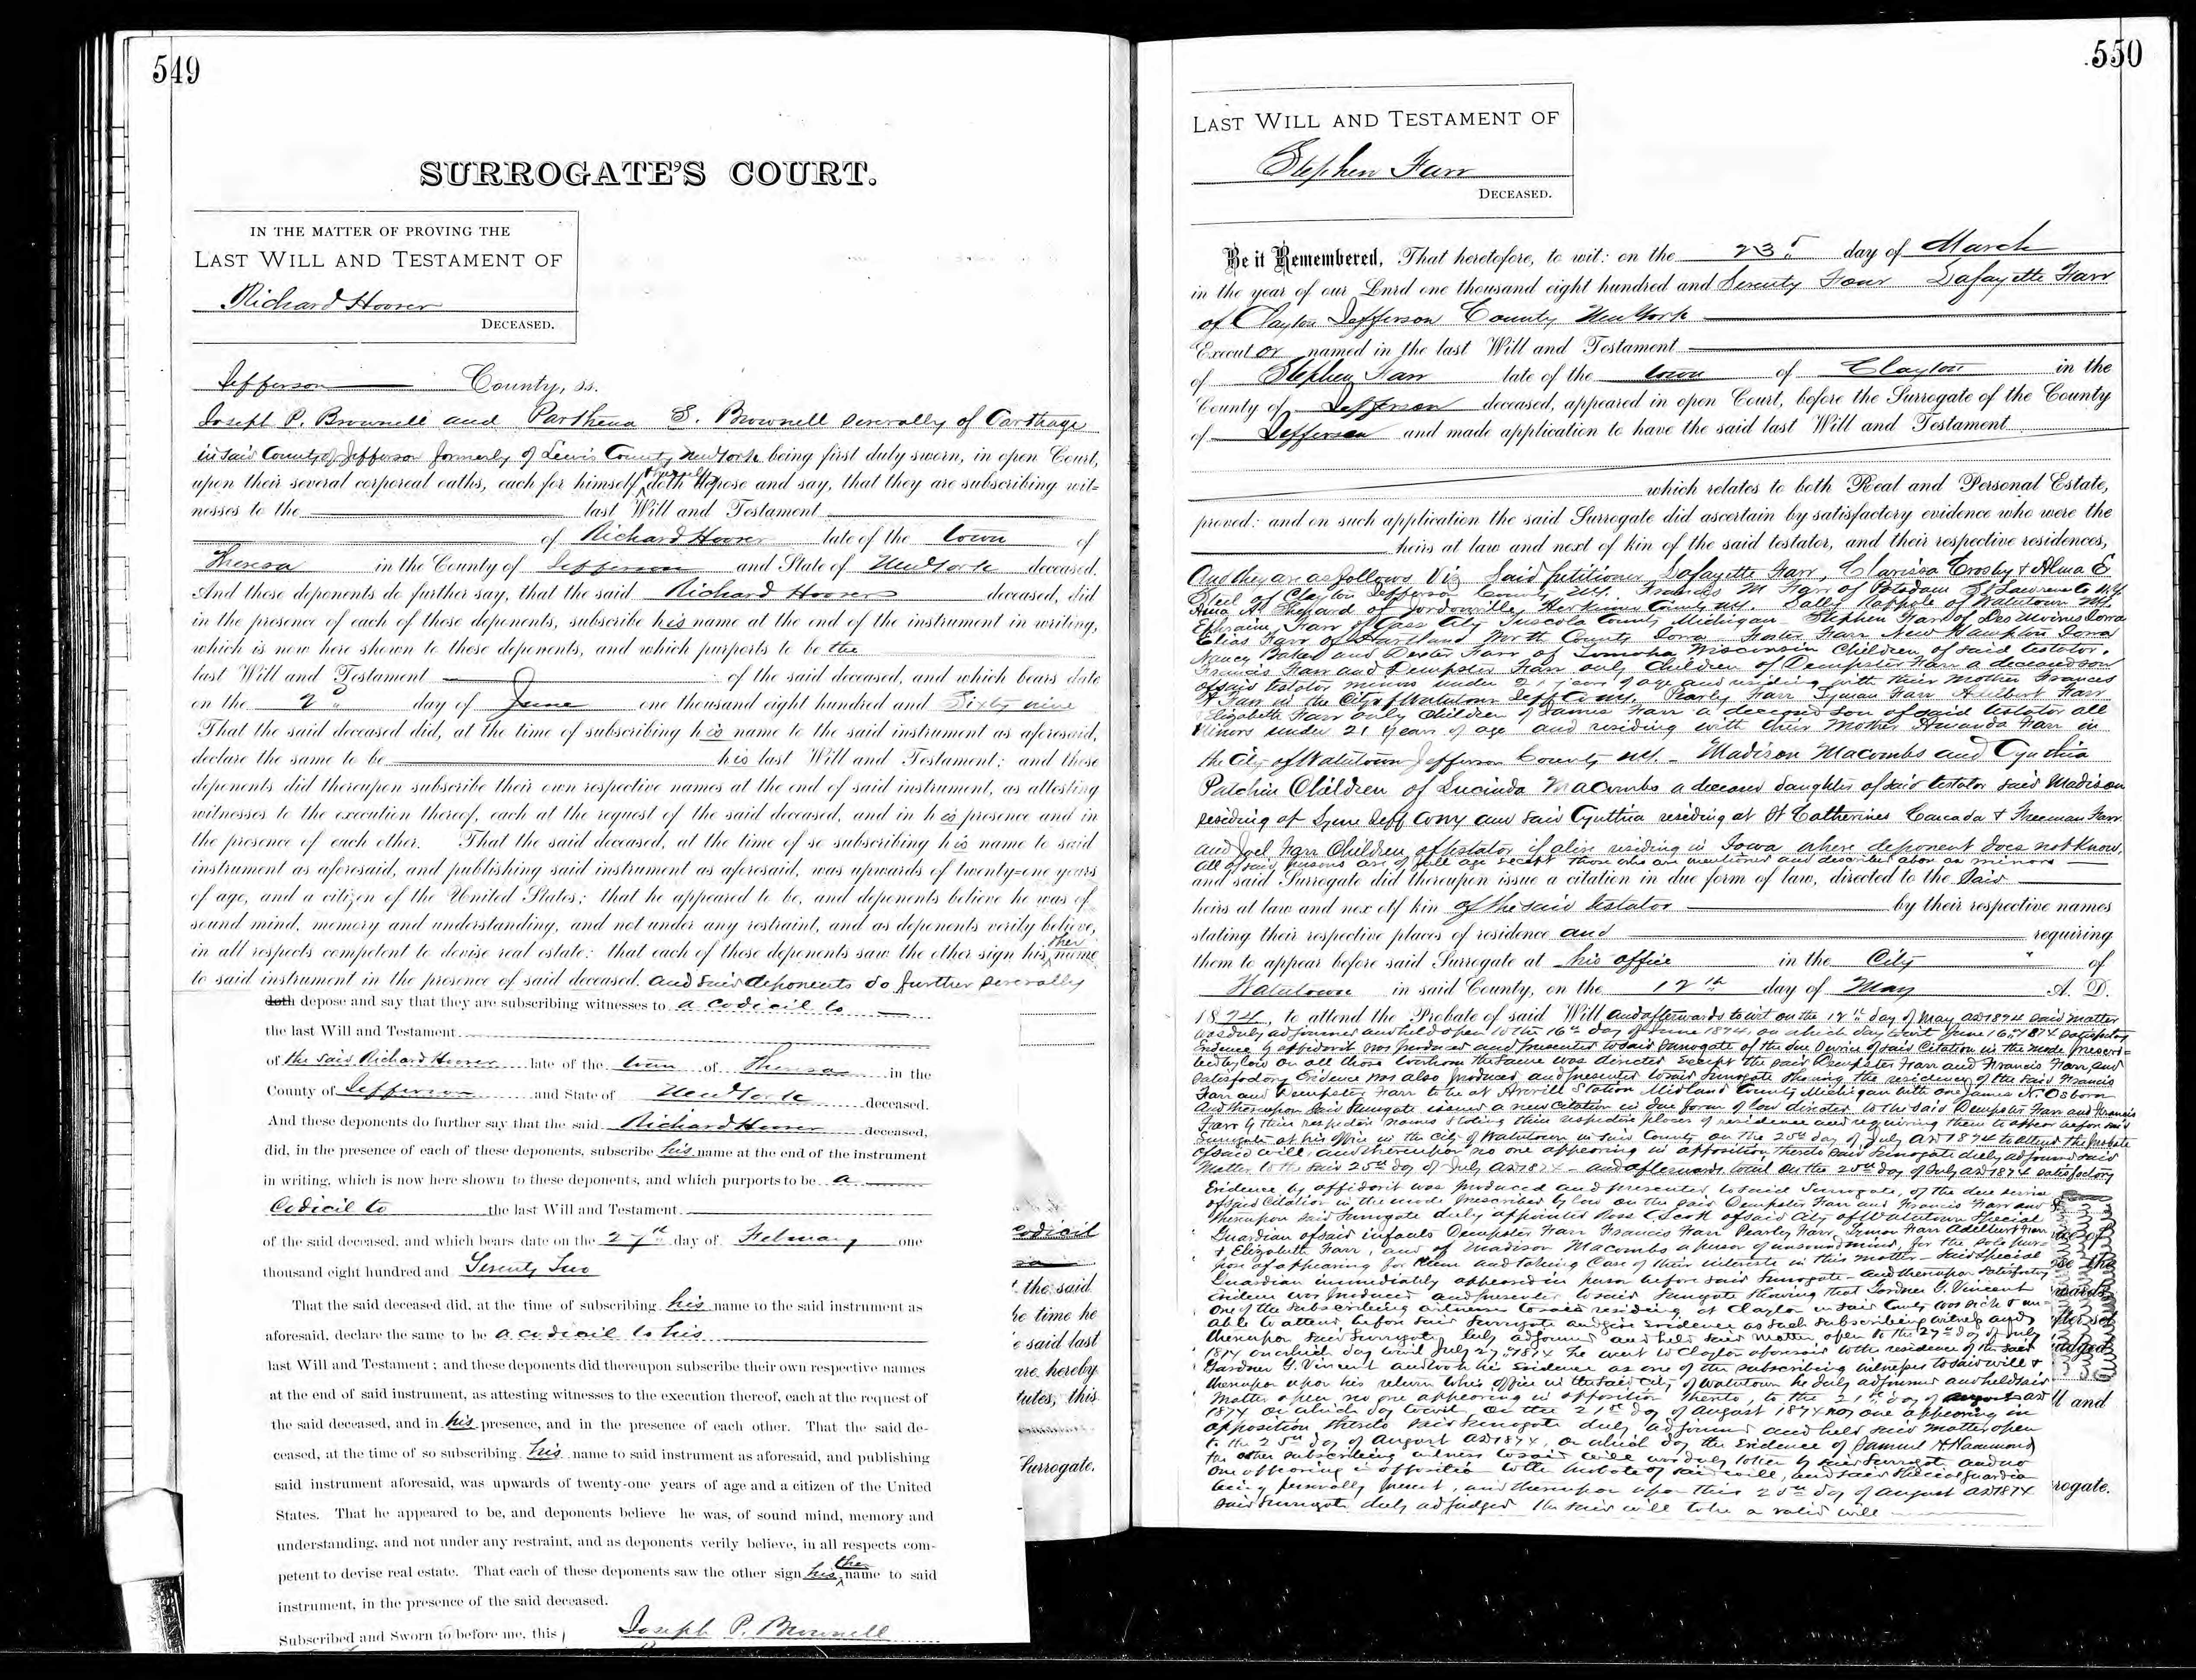 549
SURROGATE'S COURT.
IN THE MATTER OF PROVING THE
LAST WILL AND TESTAMENT OF
Richard Hoover
DECEASED.
Jefferson County, ss.
Joseph P. Brownell and Parthena S. Brownell severally of Carthage
in said County of Jefferson formerly of Lewis County New York being first duly sworn, in open Court,
upon their several corporeal oaths, each for himself doth depose and say, that they are subscribing wit=
nesses to the last Will and Testament
of Richard Hoover late of the town of
Theresa in the County of Jefferson and State of New York deceased.
And these deponents do further say, that the said Richard Hoover deceased, did
in the presence of each of these deponents, subscribe his name at the end of the instrument in writing,
which is now here shown to these deponents, and which purports to be the
last Will and Testament of the said deceased, and which bears date
on the 2d day of June one thousand eight hundred and Sixty nine
That the said deceased did, at the time of subscribing his name to the said instrument as aforesaid,
declare the same to be his last Will and Testament; and these
deponents did thereupon subscribe their own respective names at the end of said instrument, as attesting
witnesses to the execution thereof, each at the request of the said deceased, and in his presence and in
the presence of each other. That the said deceased, at the time of so subscribing his name to said
instrument as aforesaid, and publishing said instrument as aforesaid, was upwards of twenty=one years
of age, and a citizen of the United States; that he appeared to be, and deponents believe he was of
sound mind, memory and understanding, and not under any restraint, and as deponents verily believe,
in all respects competent to devise real estate: that each of these deponents saw the other sign his her name
to said instrument in the presence of said deceased. and said deponents do further severally
doth depose and say that they are subscribing witnesses to a codicil to
the last Will and Testament
of the said Richard Hoover late of the town of Theresa in the
County of Jefferson and State of New York deceased.
And these deponents do further say that the said Richard Hoover deceased,
did, in the presence of each of these deponents, subscribe his name at the end of the instrument
in writing, which is now here shown to these deponents, and which purports to be a
Codicil to the last Will and Testament
of the said deceased, and which bears date on the 27th day of February one
thousand eight hundred and Seventy Two
That the said deceased did, at the time of subscribing his name to the said instrument as
aforesaid, declare the same to be a codicil to his
last Will and Testament; and these deponents did thereupon subscribe their own respective names
at the end of said instrument, as attesting witnesses to the execution thereof, each at the request of
the said deceased, and in his presence, and in the presence of each other. That the said de-
ceased, at the time of so subscribing his name to said instrument as aforesaid, and publishing
said instrument aforesaid, was upwards of twenty-one years of age and a citizen of the United
States. That he appeared to be, and deponents believe he was, of sound mind, memory and
understanding, and not under any restraint, and as deponents verily believe, in all respects com-
petent to devise real estate. That each of these deponents saw the other sign his name to said
instrument, in the presence of the said deceased.
Subscribed and Sworn to before me, this Joseph P. Brownell
codicil
the said
he time he
said last
are hereby
tutes, this
Surrogate.
550
LAST WILL AND TESTAMENT OF
Stephen Farr
DECEASED.
Be it Remembered, That heretofore, to wit: on the 23d day of March
in the year of our Lord one thousand eight hundred and Seventy Four Lafayette Farr
of Clayton Jefferson County New York
Executor named in the last Will and Testament
of Stephen Farr late of the town of Clayton in the
County of Jefferson deceased, appeared in open Court, before the Surrogate of the County
of Jefferson and made application to have the said last Will and Testament
which relates to both Real and Personal Estate,
proved: and on such application the said Surrogate did ascertain by satisfactory evidence who were the
heirs at law and next of kin of the said testator, and their respective residences,
And they are as follows Viz Said petitioner Lafayette Farr, Clarissa Crosby & Alma E
of Clayton Jefferson County N.Y. Francis M Farr of Potsdam St Lawrence Co N.Y.
A. Shepard of Jordanville, Herkimer County N.Y. Sally of Watertown N.Y.
Ephraim Farr of Cass City Tuscola County Michigan Stephen Farr of Des Moines Iowa
Elias Farr of Hartland Worth County Iowa Foster Farr New Hampton Iowa
Nancy Baker and Dexter Farr of Tomoha Wisconsin Children of said testator.
Francis Farr and Dempster Farr only Children of Dempster Farr a deceased son
of said testator minors under 21 years of age and residing with their mother Frances
A Farr in the City of Watertown Jeff Co N.Y. Pearly Farr Lyman Farr Adelbert Farr
Elizabeth Farr only Children of James Farr a deceased son of said testator all
Minors under 21 years of age and residing with their Mother Amanda Farr in
the City of Watertown Jefferson County N.Y. - Madison Macombs and Cynthia
Patchin Children of Lucinda Macombs a deceased daughter of said testator said Madison
residing at Lyme Jeff Co N.Y. and said Cynthia residing at St Catherines Canada & Freeman Farr
and Joel Farr Children of testator if alive residing in Iowa where deponent does not know.
all of said persons are of full age except those who are mentioned and described above as minors
and said Surrogate did thereupon issue a citation in due form of law, directed to the said
heirs at law and nex otf kin of the said testator by their respective names
stating their respective places of residence and requiring
them to appear before said Surrogate at his office in the City of
Watertown in said County, on the 12th day of May A. D.
1874, to attend the Probate of said Will and afterwards to wit on the 12th day of May AD 1874 said matter
was duly adjourned and held open to the 16th day of June 1874, on which day to wit June 16th 1874 satisfactory
Evidence by affidavit was produced and presented to said Surrogate of the due service of said Citation in the mode prescri=
bed by law on all those to whom the same was directed Except the said Dempster Farr and Francis Farr, and
satisfactory Evidence was also produced and presented to said Surrogate showing the residence of the said Francis
Farr and Dempster Farr to be at Averill Station Midland County Michigan with one James N. Osborn
And thereupon said Surrogate issued a new citation in due form of law directed to the said Dempster Farr and Francis
Farr by their respective names stating their respective places of residence and requiring them to appear before said
Surrogate at his Office in the City of Watertown in said County on the 25th day of July AD 1874 to attend the Probate
of said will, and thereupon no one appearing in opposition thereto said Surrogate duly adjourned said
Matter to the said 25th day of July AD 1874 - and afterwards to wit on the 25th day of July AD 1874 satisfactory
Evidence by affidavit was produced and presented to said Surrogate, of the due service
of said Citation in the mode prescribed by law on the said Dempster Farr and Francis Farr and
thereupon said Surrogate duly appointed Ross C Scott of said City of Watertown Special
Guardian of said infants Dempster Farr Francis Farr Pearly Farr, Lyman Farr Adelbert Farr
& Elizabeth Farr, and of Madison Macombs a person of unsound mind, for the sole pur=
pose of appearing for them and taking Care of their interests in this matter - Said Special
Guardian immediately appeared in person before said Surrogate - and thereupon satisfactory
evidence was produced and presented to said Surrogate showing that Gardner G. Vincent
One of the subscribing witnesses to said residing at Clayton in said County was sick & un=
able to attend before said Surrogate and give evidence as such subscribing witness and
thereupon said Surrogate duly adjourned and held said matter open to the 27th day of July
1874 on which day to wit July 27th 1874 he went to Clayton aforesaid to the residence of the said
Gardner G. Vincent and took his Evidence as one of the subscribing witnesses to said will &
thereupon upon his return to his office in the said City of Watertown he duly adjourned and held said
Matter open no one appearing in opposition thereto, to the 21st day of august AD
1874 on which day to wit on the 21st day of August 1874 no one appearing in
opposition thereto said Surrogate duly adjourned and held said matter open
to the 25th day of August AD 1874, on which day the Evidence of Samuel H Hammond
the other subscribing witness to said will was duly taken by said Surrogate and no
one appearing in opposition to the Probate of said will, and said Special guardian
being personally present, and thereupon upon this 25th day of August AD 1874
said Surrogate duly adjudged the said will to be a valid will
ll and
rogate.